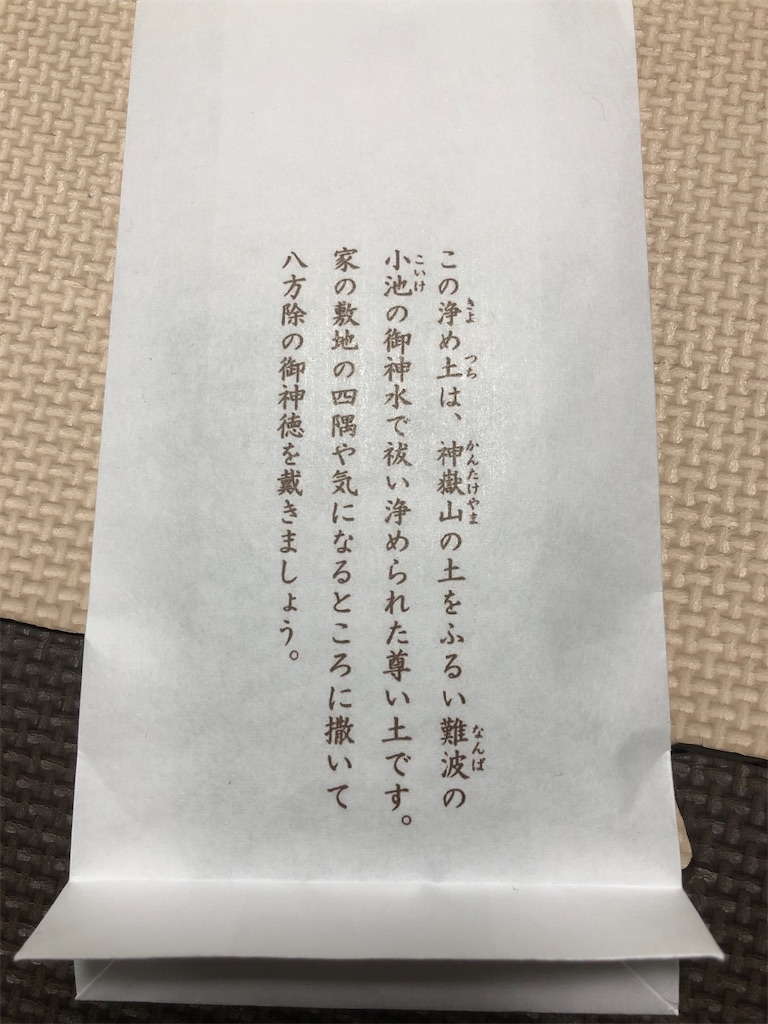 この浄め土は、神嶽山の土をふるい難波の
小池の御神水で祓い浄められた尊い土です。
家の敷地の四隅や気になるところに撒いて
八方除の御神徳を戴きましょう。